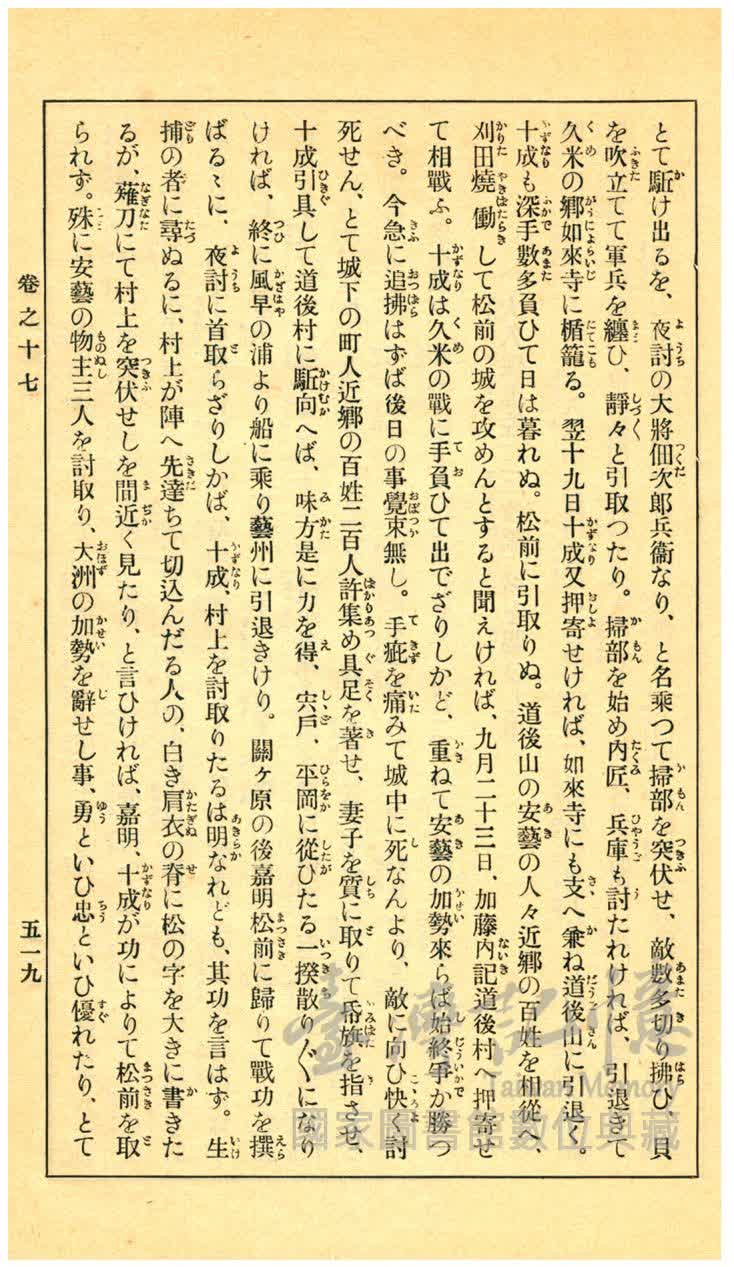 とて駈け出るを、夜討の大將佃次郎兵衞なり、と名乘つて掃部を突伏せ、敵數多切り拂ひ、貝
を吹立てて軍兵を纏ひ、靜々と引取つたり。掃部を始め內匠、兵庫も討たれければ、引退きて
久米の鄕如來寺に楯籠る。翌十九日十成又押寄せければ、如來寺にも支へ兼ね道後山に引退く。
十成も深手數多負ひて日は暮れぬ。松前に引取りぬ。道後山の安藝の人々近鄕の百姓を相從へ、
刈田燒働して松前の城を攻めんとすると聞えければ、九月二十三日、加藤內記道後村へ押寄せ
て相戰ふ。十成は久米の戰に手負ひて出でざりしかど、重ねて安藝の加勢來らば始終爭か勝つ
べき。今急に追拂はずば後日の事覺束無し。手疵を痛みて城中に死なんより、敵に向ひ快く討
死せん、とて城下の町人近鄕の百姓二百人許集め具足を著せ、妻子を質に取りて帋旗を指させ、
十成引具して道後村に駈向へば、味方是に力を得、宍戶、平岡に從ひたる一揆散り〴〵になり
ければ、終に風早の浦より船に乘り藝州に引退きけり。關ヶ原の後嘉明松前に歸りて戰功を撰
ばるゝに、夜討に首取らざりしかば、十成、村上を討取りたるは明なれども、其功を言はず。生
捕の者に尋ぬるに、村上が陣へ先達ちて切込んだる人の、白き肩衣の脊に松の字を大きに書きた
るが、薙刀にて村上を突伏せしを間近く見たり、と言ひければ、嘉明、十成が功によりて松前を取
られず。殊に安藝の物主三人を討取り、大洲の加勢を辭せし事、勇といひ忠といひ優れたり、とて
卷之十七
五一九
臺灣記憶
Taiwan Memory
國家圖書館數位典藏